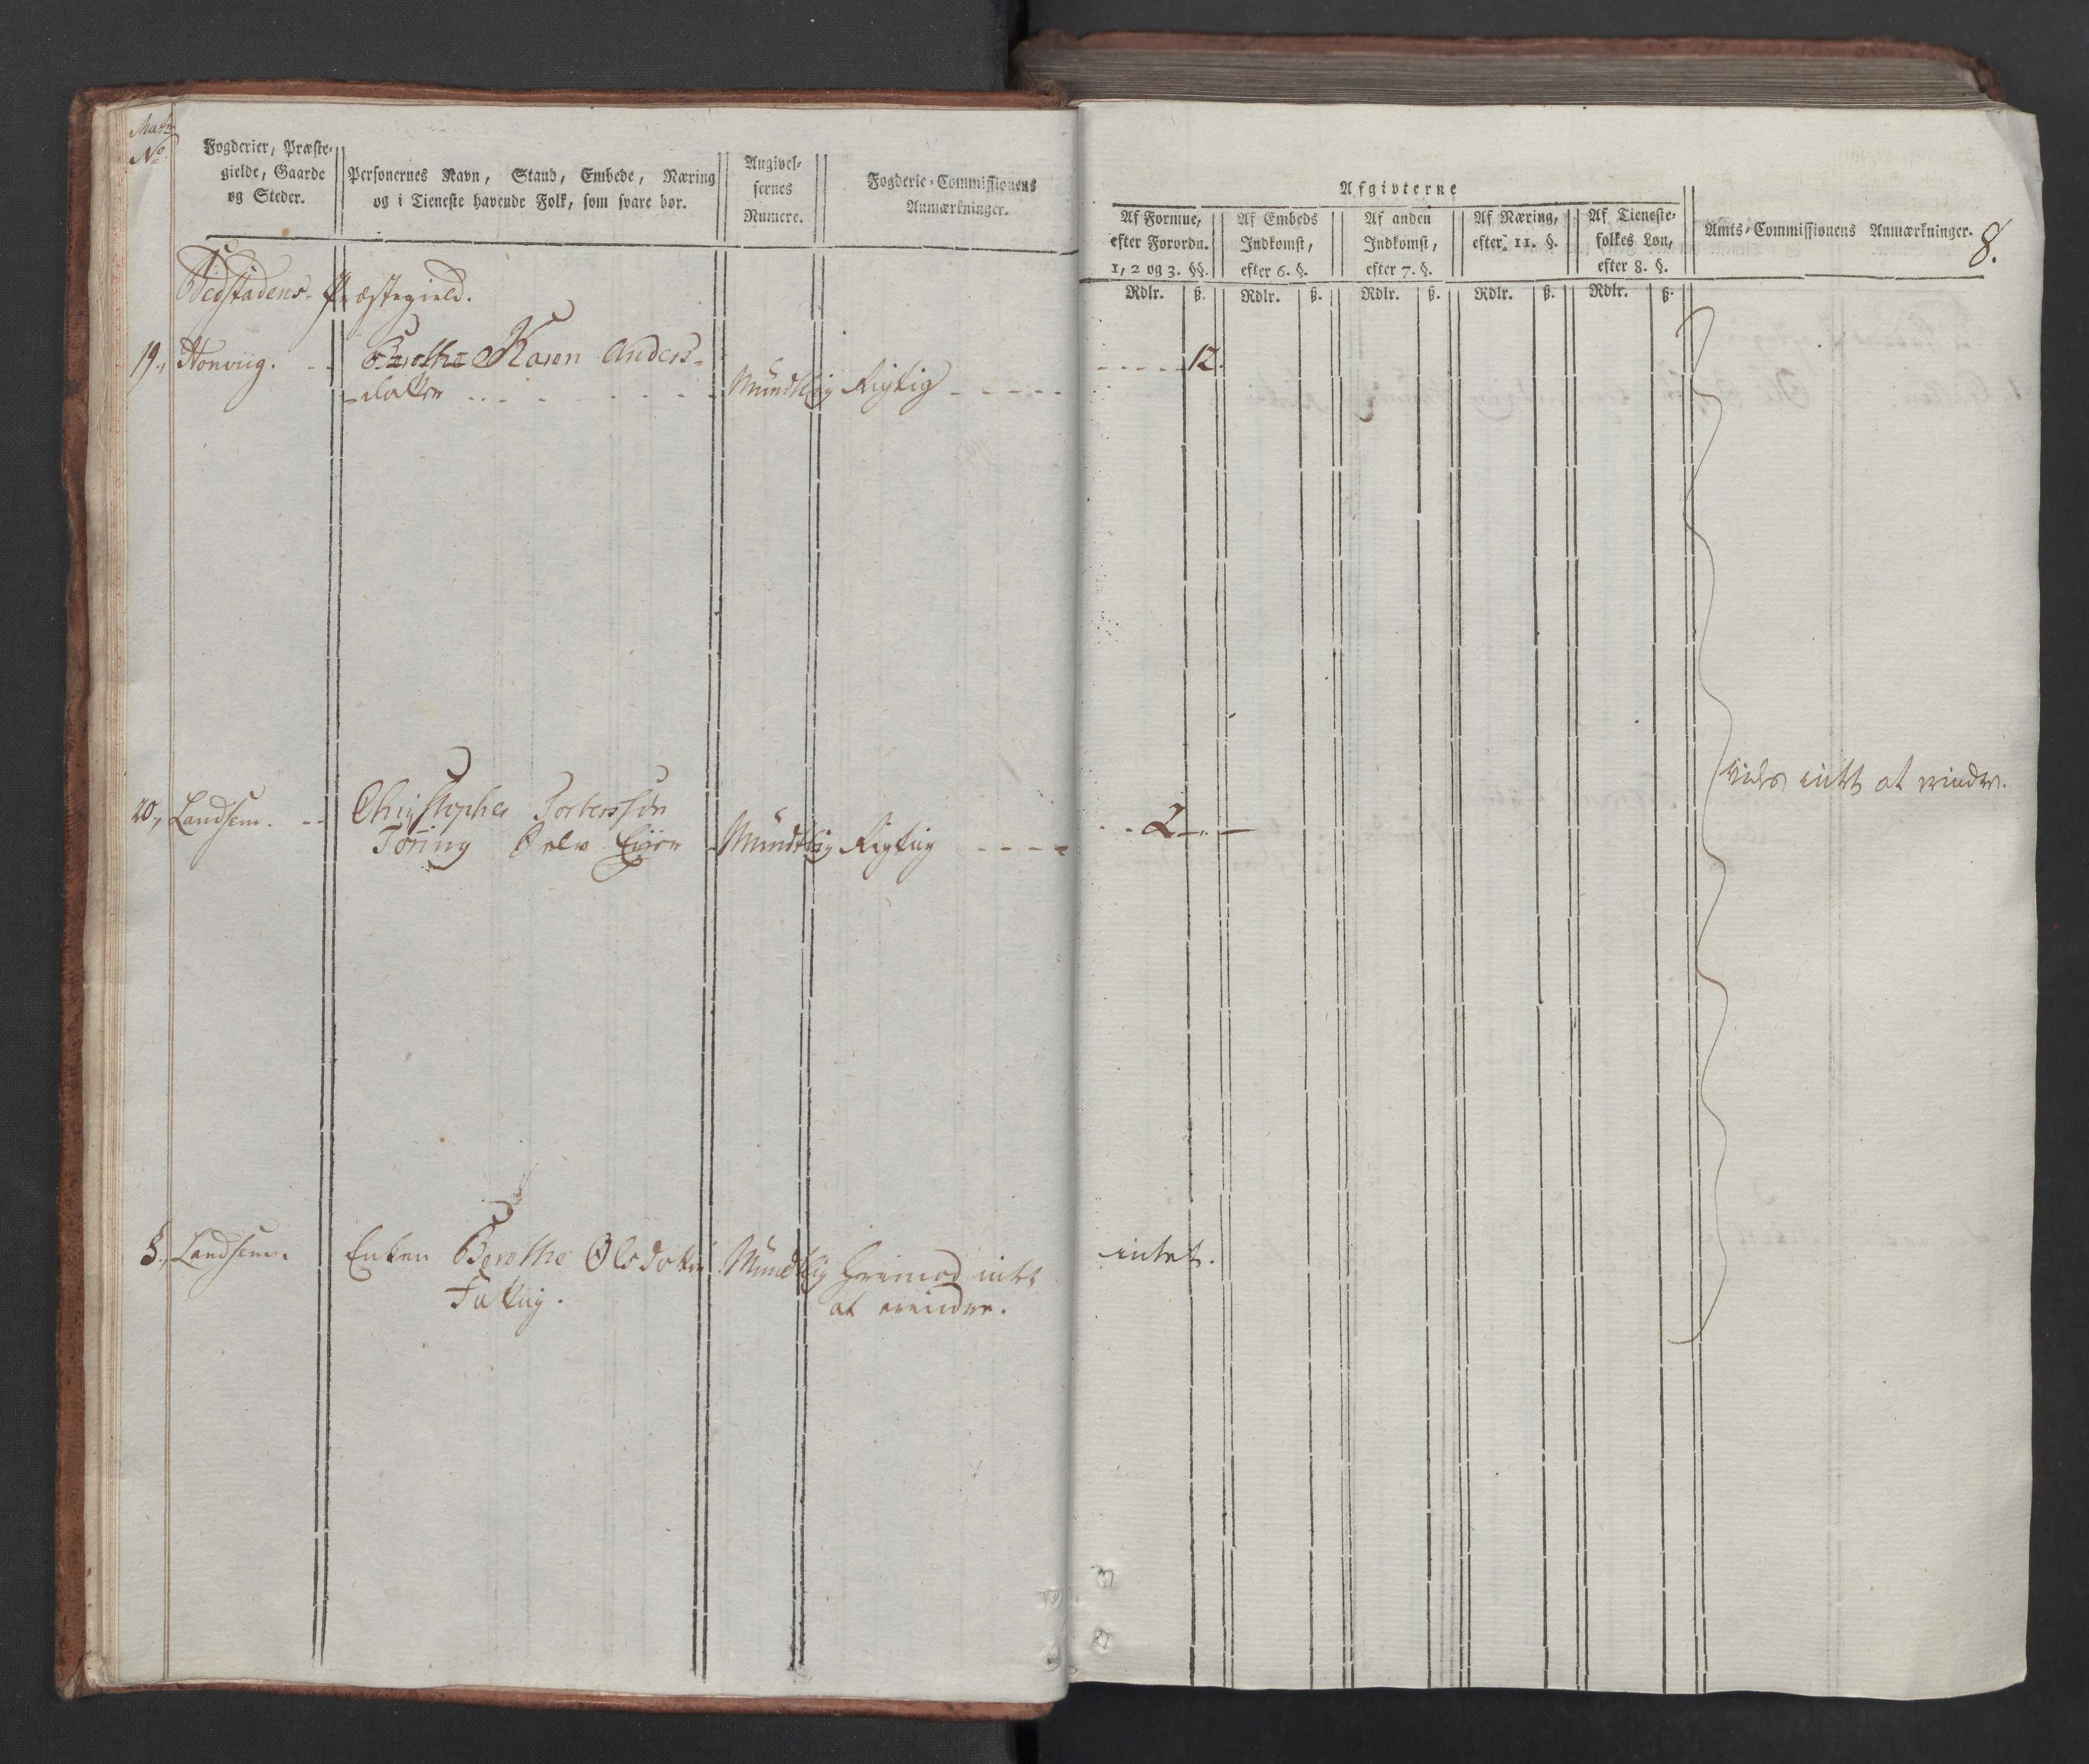 Matr
No.
Fogderier, Præste-
gielde, Gaarde
og Steder.
Personernes Navn, Stand, Embede, Næring
og i Tieneste havende Folk, som svare bør.
Angivel-
sernes
Numere.
Fogderie-Commissionens
Anmærkninger.
Afgivterne
Af Formue,
efter Forordn.
1, 2 og 3. §§.
Af Embeds
Indkomst,
efter 6. §.
Af anden
Indkomst,
efter 7. §.
Af Næring,
efter 11. §.
Af Tieneste-
folkes Løn,
efter 8. §.
Amts-Commissionens Anmærkninger.
8.
Rdlr. ß. Rdlr. ß. Rdlr. ß. Rdlr. ß. Rdlr. ß.
Bedstadens Præstegield.
19., Honviig. Berethe Karen Anders-
datter Mundtlig Rigtig 12.
20., Landsem. Christopher Torberssøn
Mundtlig Rigtig 2
intet at erindre.
8., Landsem. Enken Berethe Olsdatter Mundtlig Herimod intet
Fattig. at erindre.
intet.